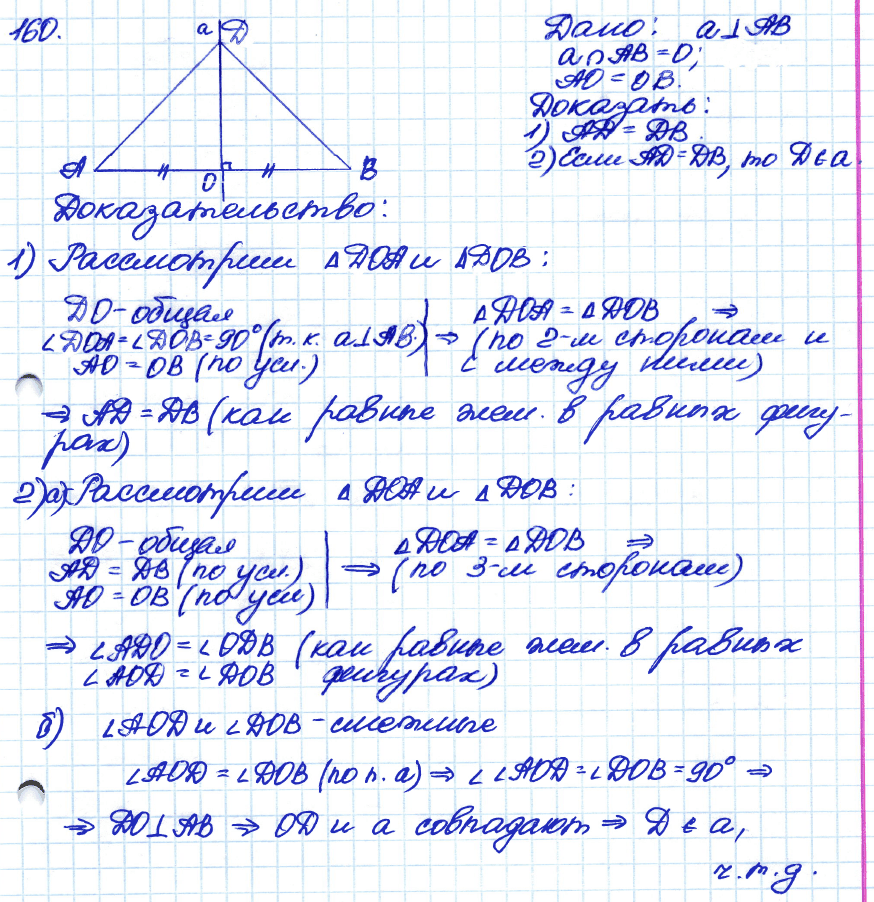 160.
a D
A O B
Дано: a⊥AB
a∩AB=O;
AO=OB.
Доказать:
1) AD=DB.
2) Если AD=DB, то D∈a.
Доказательство:
1) Рассмотрим △DOA и △DOB:
DO-общая
∠DOA=∠DOB=90°(т.к. a⊥AB.)
AO=OB (по усл.)
⇒
△DOA=△DOB ⇒
(по 2-м сторонам и
∠ между ними)
⇒ AD=DB (как равные элем. в равных фигу-
рах)
2)а) Рассмотрим △DOA и △DOB:
DO-общая
AD=DB (по усл.)
AO=OB (по усл)
⇒
△DOA=△DOB ⇒
(по 3-м сторонам)
⇒ ∠ADO=∠ODB (как равные элем. в равных
∠AOD=∠DOB фигурах)
б) ∠AOD и ∠DOB-смежные
∠AOD=∠DOB (по п. а) ⇒ ∠ ∠AOD=∠DOB=90° ⇒
⇒ DO⊥AB ⇒ OD и a совпадают ⇒ D∈a,
ч.т.д.